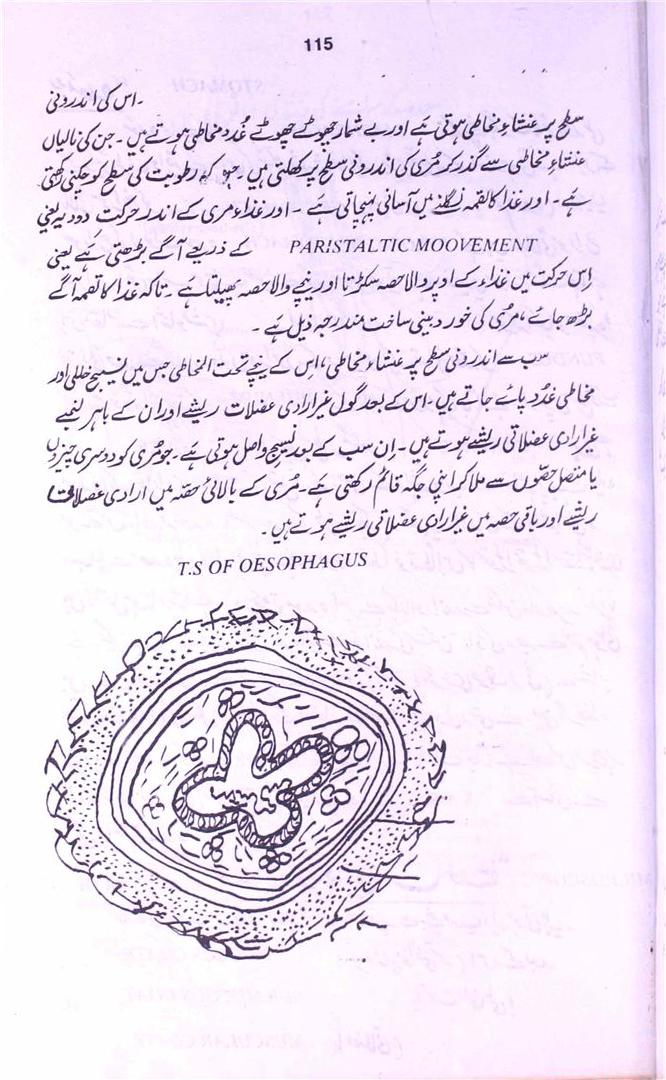 115
۔اس کی اندرونی
سطح پر غشاءِ مخاطی ہوتی ہے اور بے شمار چھوٹے چھوٹے غُدد مخاطی ہوتے ہیں۔ جن کی نالیاں
غشاءِ مخاطی سے گذر کر مُری کی اندرونی سطح پر کھلتی ہیں۔ جو کہ رطوبت کی سطح کو چکنی رکھتی
ہے۔ اور غذا کا لقمہ نگلنے میں آسانی پہنچاتی ہے۔ اور غذاء مری کے اندر حرکت دودیہ یعنی
PARISTALTIC MOOVEMENT کے ذریعے آگے بڑھتی ہے یعنی
اِس حرکت میں غذاء کے اوپر والا حصہ سکڑتا اور نیچے والا حصہ پھیلتا ہے۔ تاکہ غذا کا لقمہ آگے
بڑھ جائے، مرُی کی خوردبینی ساخت مندرجہ ذیل ہے۔
سب سے اندرونی سطح پر غشاء مخاطی، اس کے نیچے تحت المخاطی جس میں نسیج خللی اور
مخاطی غُدد پائے جاتے ہیں۔ اس کے بعد گول غیر ارادی عضلات ریشے اور ان کے باہر لمبے
غیر ارادی عضلاتی ریشے ہوتے ہیں۔ اِن سب کے بعد نسیج واصل ہوتی ہے۔ جو مُری کو دوسری چیزوں
یا متصل حصّوں سے ملا کر اپنی جگہ قائم رکھتی ہے۔ مُری کے بالائی حصّہ میں ارادی عضلاتی
ریشے اور باقی حصہ میں غیر ارادی عضلاتی ریشے ہوتے ہیں۔
T.S OF OESOPHAGUS